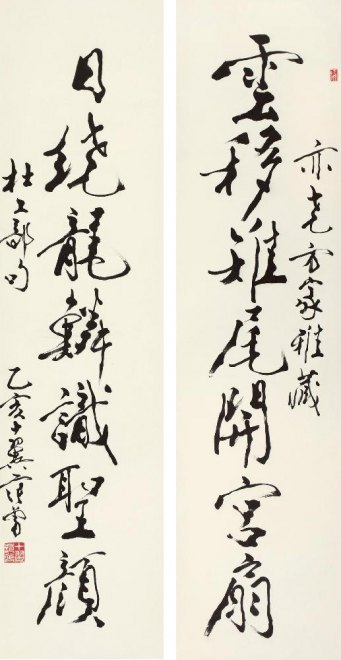 雲移雉尾開宮扇
亦方家雅藏
日繞龍鱗識聖顏
杜工部句
乙亥十翼范曾